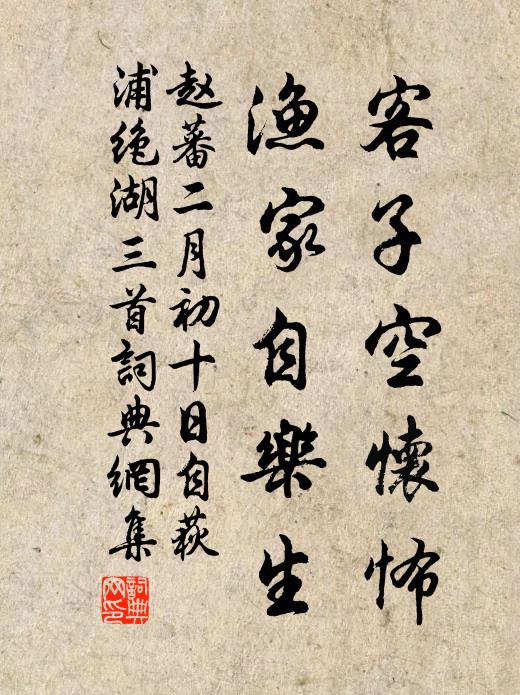 客子空懷怖
漁家自樂生
赵蕃二月初十日自荻
浦绝湖三首詞典網集
詞典網印